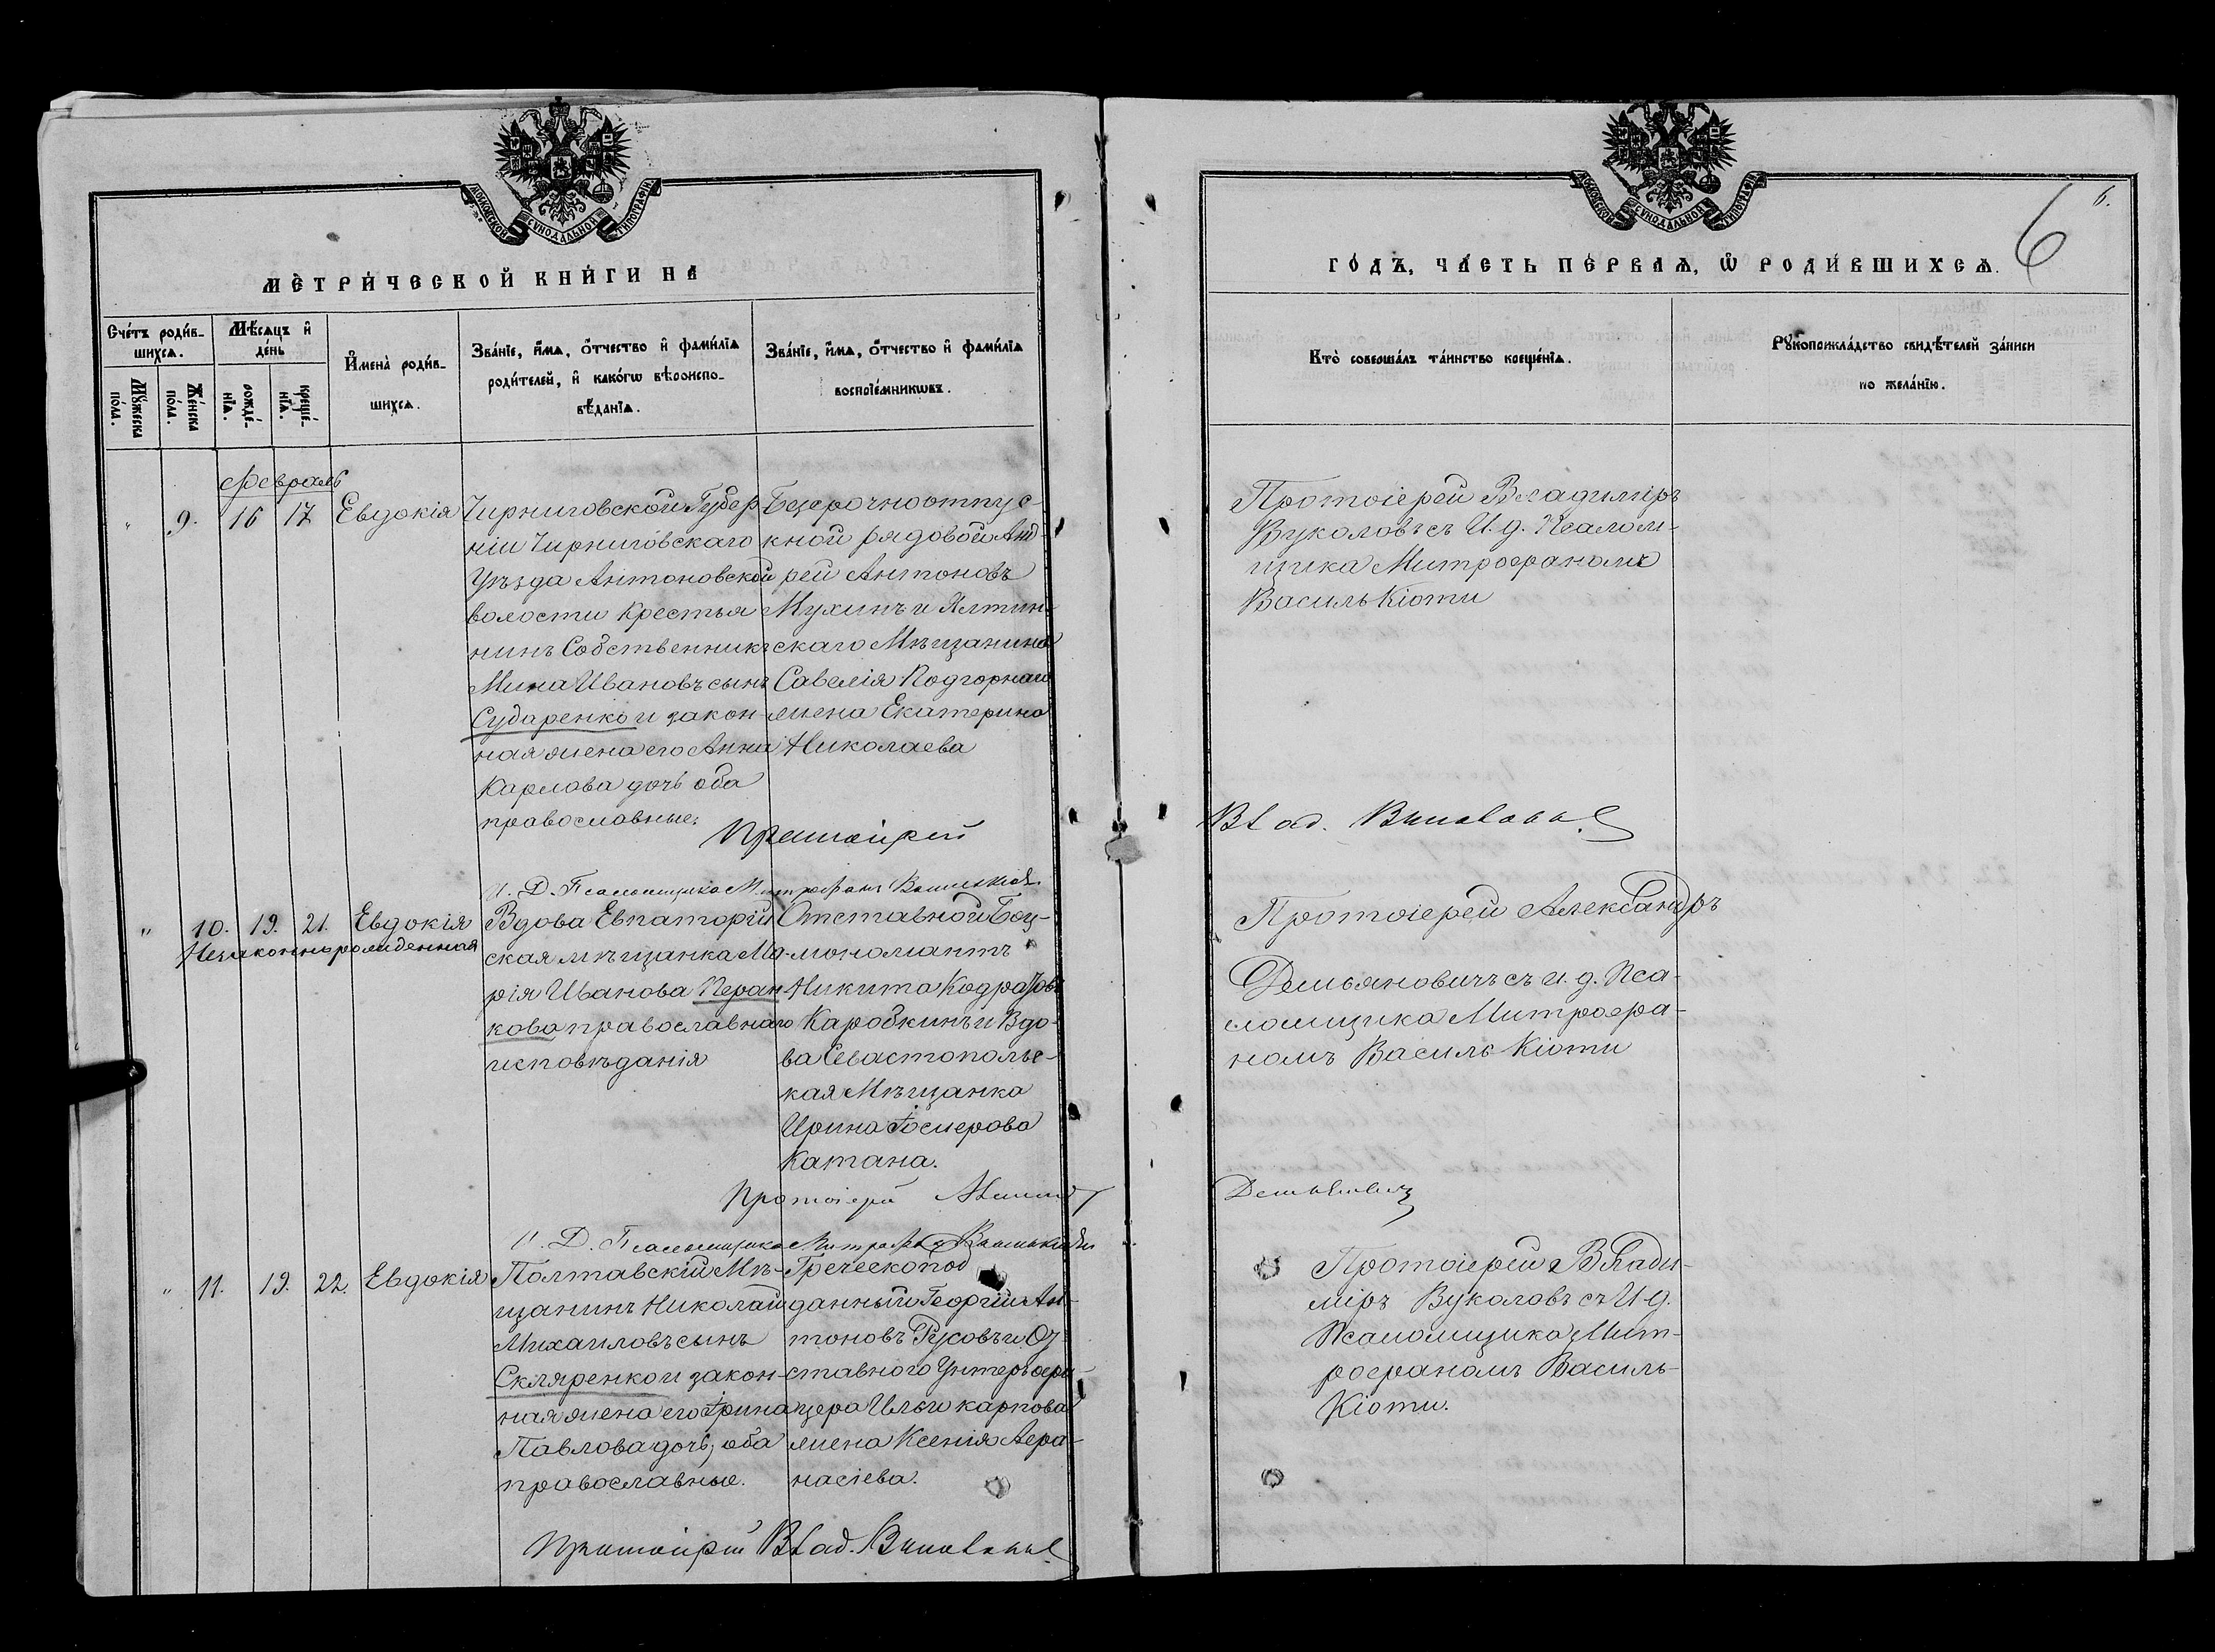 МОСКОВСКОЙ СѴНОДАЛЬНОЙ ТИПОГРАФІИ
МЕТРИ́ЧЕСКОЙ КНИ́ГИ НА
Сче́тъ роди́в-
шихсѧ.
Мѣ́сѧцъ и҆
де́нь
И҆мена̀ роди́в-
шихсѧ.
Зва́нїе, и҆́мѧ, ѻ҆́тчество и҆ фами́лїѧ
роди́телей, и҆ како́гѡ вѣроиспо-
вѣ́данїѧ.
Зва́нїе, и҆́мѧ, ѻ҆́тчество и҆ фами́лїѧ
воспрїе́мникѡвъ.
Мꙋ́жеска
по́ла.
Же́нска
по́ла.
рожде́-
нїѧ.
креще́-
нїѧ.
Февраль
" 9. 16 17 Евдокія
Чирниговской Губер
ніи Чирниговскаго
Уѣзда Антоновской
волости Крестья
нинъ Собственникъ
Мина Ивановъ сынъ
Сударенко и закон-
ная жена его Анна
Карлова дочь оба
православные.
Безсрочноотпус-
кной рядовой Анд-
рей Антоновъ
Мухинъ и Ялтин-
скаго Мѣщанина
Савелія Подгорнаго
жена Екатерина
Николаева
Протоіерей
И. Д. Псаломщика Митрофанъ Василькіоти
" 10. 19. 21. Евдокія
Незаконнорожденная
Вдова Евпаторій
ская мѣщанка Ма-
рія Иванова Перан
кова православнаго
исповѣданія
Отставной Боц-
манматъ
Никита Кодратовъ
Каробкинъ и Вдо-
ва Севастополь-
кая Мѣщанка
Ирина
Катана.
Протоіерей
И. Д. Псаломщика Митрофанъ Василькіоти
" 11. 19. 22. Евдокія
Полтавскій Мѣ-
щанинъ Николай
Михаиловъ сынъ
Скляренко и закон-
ная жена его Ирина
Павлова дочь, оба
православные.
Греческопод
данный Георгій Ан-
тоновъ Русовъ и От
ставного Унтеръ офи-
цера Ильи Карпова
жена Ксенія Афа-
насіева.
Протоіерей Влад. Вуколовъ
МОСКОВСКОЙ СѴНОДАЛЬНОЙ ТИПОГРАФІИ
6.
6
ГО́ДЪ, ЧА́СТЬ ПЕ́РВАѦ, Ѡ҆ РОДИ́ВШИХСѦ.
Кто̀ соверша́лъ та́инство креще́нїѧ.
Рꙋкоприкла́дство свидѣ́телей за́писи
по жела́нїю.
Протоіерей Владиміръ
Вуколовъ съ И. д. Псалом-
щика Митрофаномъ
Василь Кіоти
Влад. Вуколовъ
Протоіерей Александръ
Демьяновичъ съ и. д. Пса-
ломщика Митрофа-
номъ Василь Кіоти
Демьяновичъ
Протоіерей Влади-
міръ Вуколовъ съ И д.
Псаломщика Мит-
рофаномъ Василь-
Кіоти.